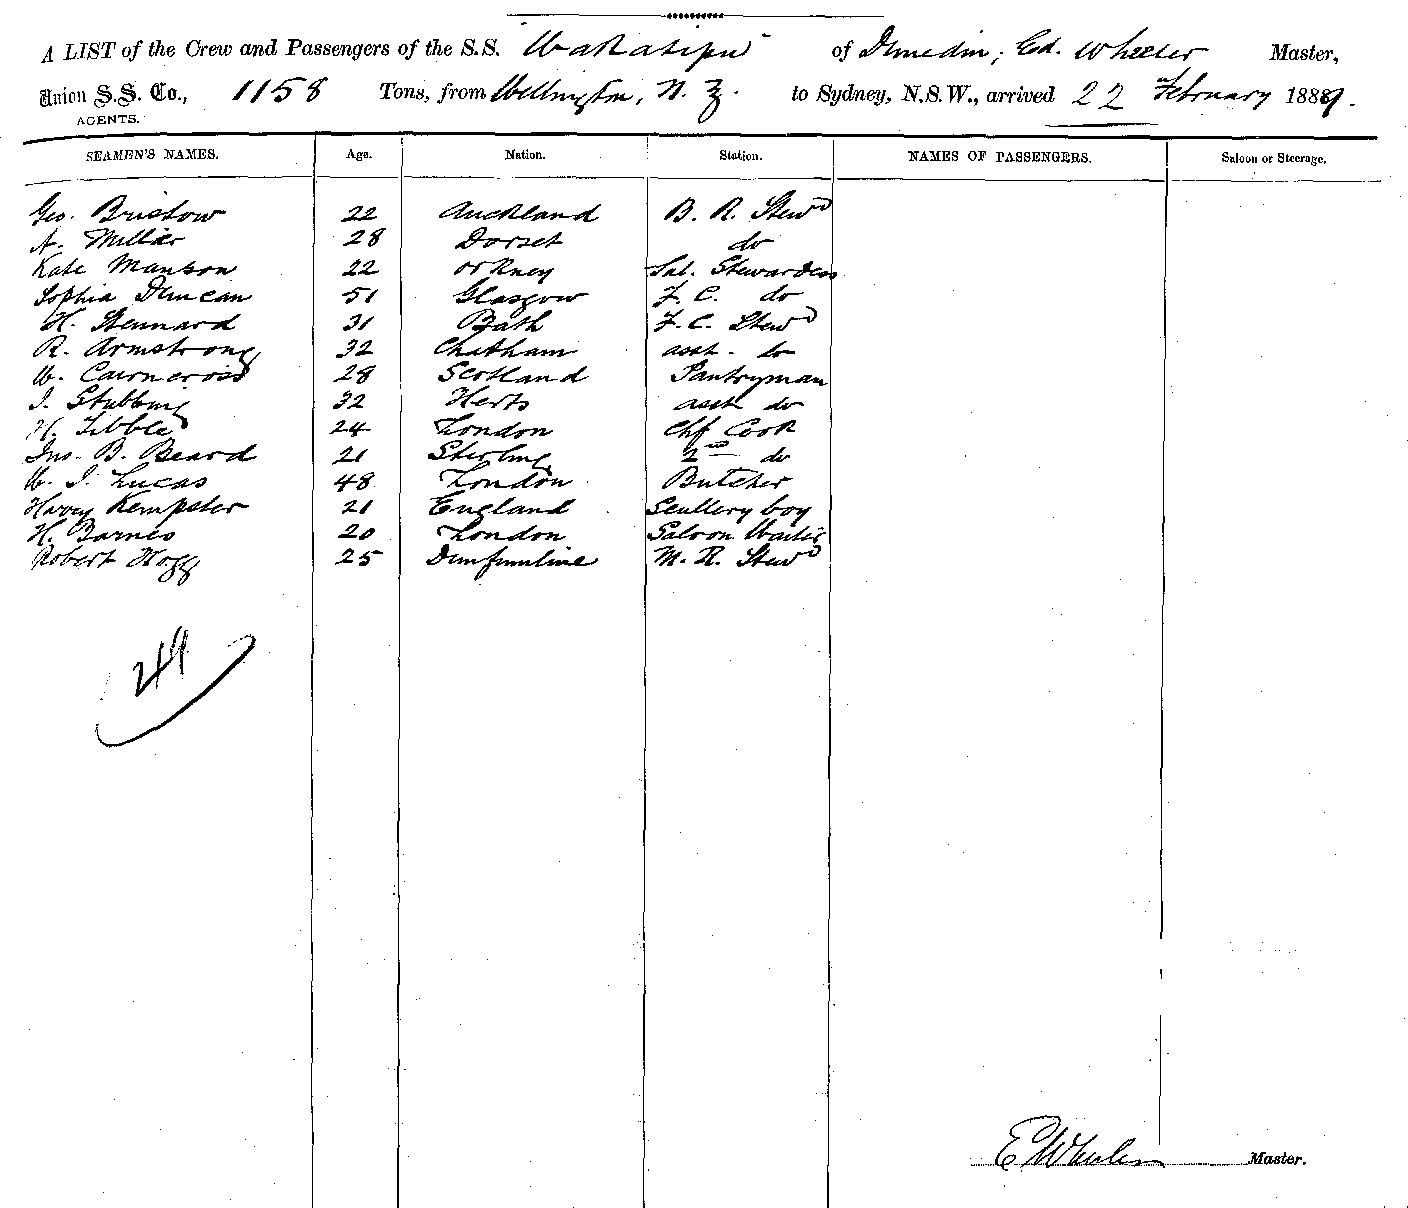 A LIST of the Crew and Passengers of the S.S. Wakatipu of Dunedin, Ed. Wheeler Master,
Union S.S. Co., 1158 Tons, from Wellington, N. Z. to Sydney, N.S.W., arrived 22 February 1889.
AGENTS.
SEAMEN'S NAMES. Age. Nation. Station. NAMES OF PASSENGERS. Saloon or Steerage.
Geo. Bristow 22 Auckland B. R. Stewd
A. Millier 28 Dorset do
Kate Manson 22 Orkney Sal. Stewardess
Sophia Duncan 51 Glasgow F. C. do
H. Stennard 31 Bath F. C. Stewd
R. Armstrong 32 Chatham asst. do
W. Cairncross 28 Scotland Pantryman
J. Stubbing 32 Herts asst do
H. Tibble 24 London Chf Cook
Jno. B. Beard 21 Stirling 2nd do
W. J. Lucas 48 London Butcher
Harry Kempster 21 England Scullery boy
H. Barnes 20 London Saloon Waiter
Robert Hogg 25 Dunfermline M. R. Stewd
E Wheeler Master.